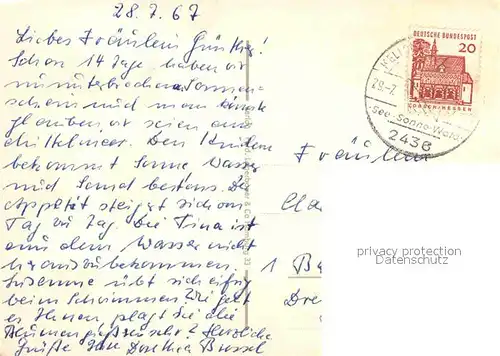 28.7.67
Liebes Fräulein Günther!
Schon 14 Tage haben wir
ununterbrochen Sonnen-
schein und man könnte
glauben wir seien am
Mittelmeer. Den Kindern
bekommt Sonne Wasser
und Sand bestens. Der
Appetit steigt sich von
Tag zu Tag. Die Tina ist
aus dem Wasser nicht
herauszubekommen.
Susanne übt sich eifrig
beim Schwimmen. Wie geht
es Ihnen, plagt Sie die
Blumengießen sehr? Herzliche
Grüße Ihre Dorothea
DEUTSCHE BUNDESPOST
20
LORSCH/HESSEN
See-Sonne-Wald
2436
Fräulein
1
privacy protection
Datenschutz